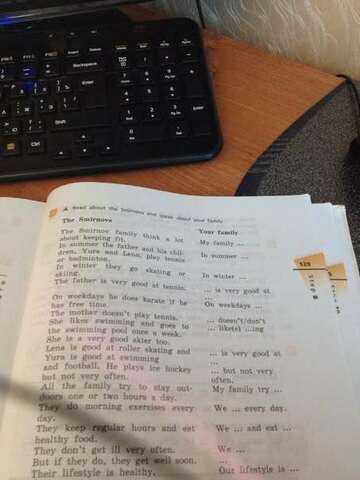 Backspace
Enter
Shift
Ctrl
Enter
A Read about the Smirnovs and speak about your family.
The Smirnovs
Your family
The Smirnov family think a lot
about keeping fit.
My family ...
In summer the father and his chil-
dren, Yura and Lena, play tennis
or badminton.
In summer ...
In winter they go skating or
skiing.
In winter ...
The father is very good at tennis.
... is very good at
...
On weekdays he does karate if he
has free time.
On weekdays ...
The mother doesn't play tennis.
... doesn't/don't
She likes swimming and goes to
the swimming pool once a week.
... like(s) ...ing
She is a very good skier too.
Lena is good at roller skating and
Yura is good at swimming
... is very good at
...
and football. He plays ice hockey
but not very often.
... but not very
often.
All the family try to stay out-
doors one or two hours a day.
My family try ...
They do morning exercises every
day.
We ... every day.
They keep regular hours and eat
healthy food.
We ... and eat ...
They don't get ill very often.
We ...
But if they do, they get well soon.
...
Their lifestyle is healthy.
Our lifestyle is ...
125
Step 8